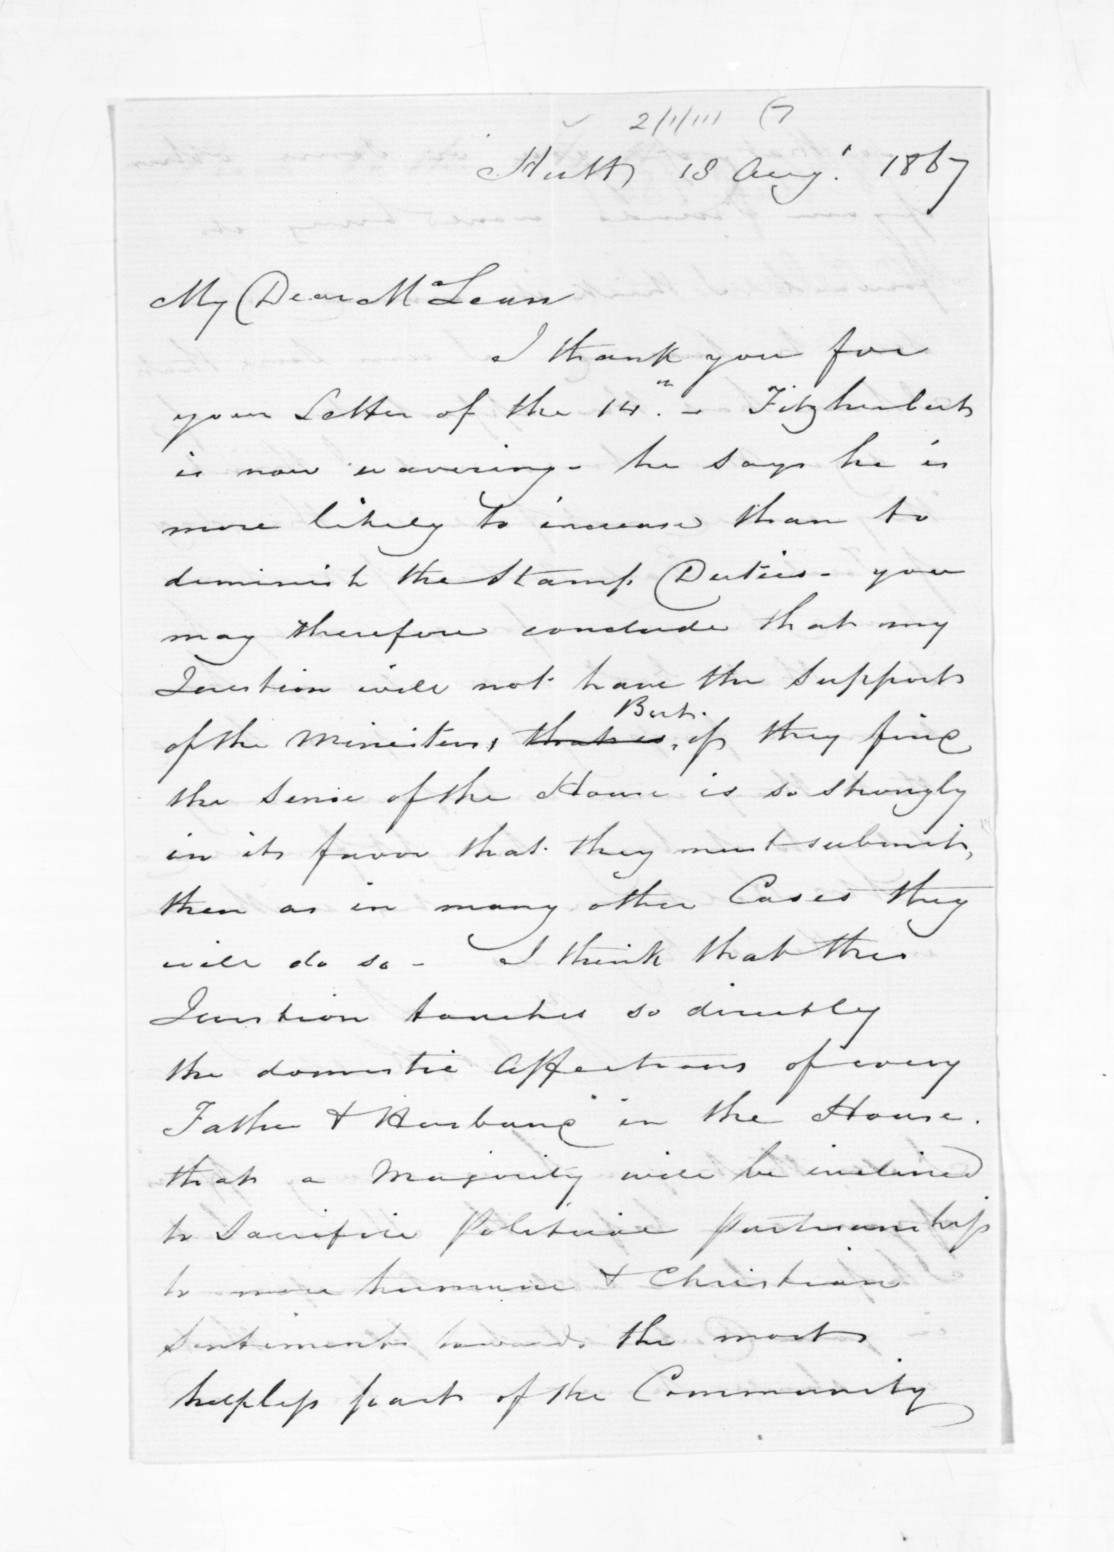 2/1/111 (7
Hutt 18 Augt. 1867
My Dear McLean
I thank you for
your Letter of the 14th. - Fitzherbert
is now wavering - he says he is
more likely to increase than to
diminish the Stamp Duties - you
may therefore conclude that my
Question will not have the support
of the Ministers, that is, But. if they find
the sense of the House is so strongly
in its favor that they must submit,
then as in many other Cases they
will do so - I think that this
Question touches so directly
the domestic Affections of every
Father & Husband in the House.
that a Majority will be inclined
to Sacrifice Political Partizanship
to more humane & Christian
Sentiments towards the most
helpless part of the Community